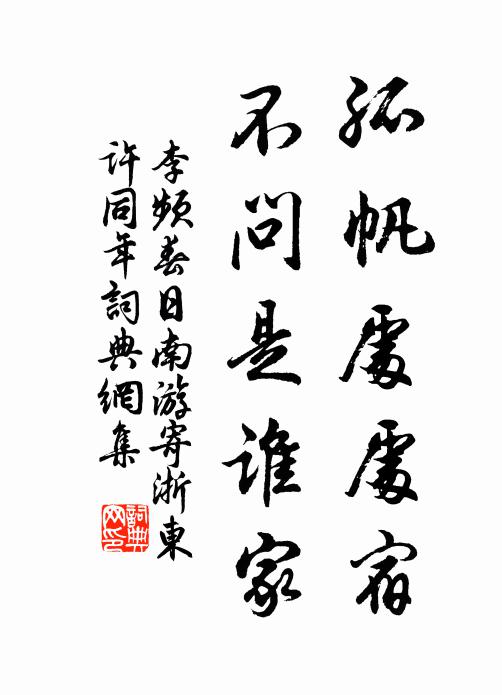 孤帆處處宿
不問是誰家
李頻春日南游寄浙東
許同年詞典網集
詞典
网印